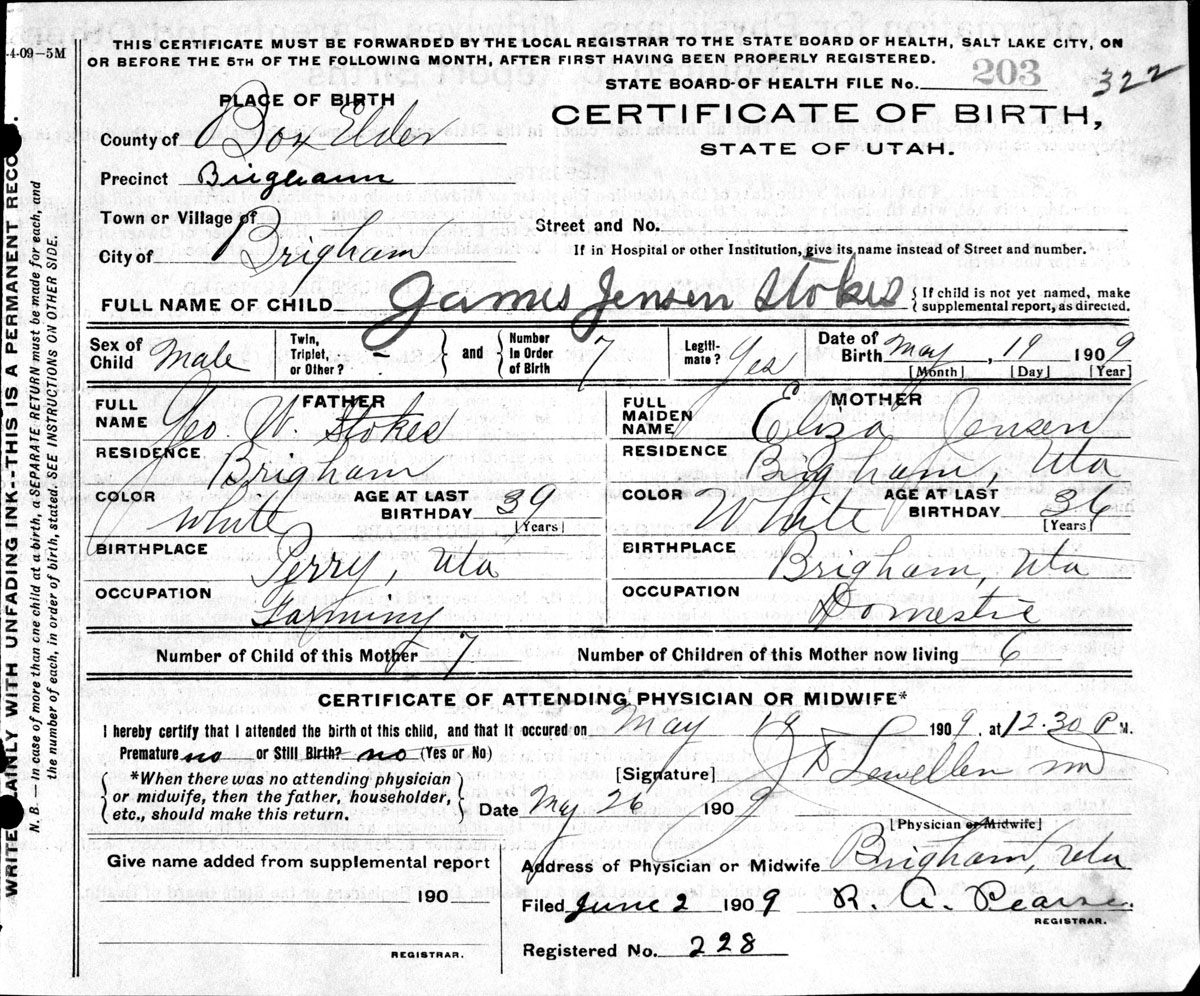 4-09—5M
THIS CERTIFICATE MUST BE FORWARDED BY THE LOCAL REGISTRAR TO THE STATE BOARD OF HEALTH, SALT LAKE CITY, ON
OR BEFORE THE 5TH OF THE FOLLOWING MONTH, AFTER FIRST HAVING BEEN PROPERLY REGISTERED.
203
322
STATE BOARD OF HEALTH FILE No.
PLACE OF BIRTH
CERTIFICATE OF BIRTH,
STATE OF UTAH.
County of Box Elder
Precinct Brigham
Town or Village of
City of Brigham
Street and No.
If in Hospital or other Institution, give its name instead of Street and number.
FULL NAME OF CHILD James Jensen Stokes {If child is not yet named, make
supplemental report, as directed.
Sex of Child Male Twin, Triplet, or Other? } and { Number In Order of Birth 7 Legiti-mate? Yes Date of Birth May, 19 1909
[Month] [Day] [Year]
FATHER
FULL NAME Geo. W. Stokes
RESIDENCE Brigham
COLOR White AGE AT LAST BIRTHDAY 39
[Years]
BIRTHPLACE Perry, Uta
OCCUPATION Farming
MOTHER
FULL MAIDEN NAME Eliza Jensen
RESIDENCE Brigham, Uta
COLOR White AGE AT LAST BIRTHDAY 36
[Years]
BIRTHPLACE Brigham, Uta
OCCUPATION Domestic
Number of Child of this Mother 7 Number of Children of this Mother now living 6
CERTIFICATE OF ATTENDING PHYSICIAN OR MIDWIFE*
I hereby certify that I attended the birth of this child, and that it occured on May 19 1909, at 12.30 P M.
Premature no or Still Birth? no (Yes or No)
*When there was no attending physician
or midwife, then the father, householder,
etc., should make this return.
[Signature] Lewellen MD
Date May 26 1909
[Physician or Midwife]
Give name added from supplemental report
190
REGISTRAR.
Address of Physician or Midwife Brigham, Uta
Filed June 2 1909 R. A. Pearse
REGISTRAR.
Registered No. 228
WRITE PLAINLY WITH UNFADING INK--THIS IS A PERMANENT RECO
N. B.—In case of more than one child at birth, a SEPARATE RETURN must be made for each, and
the number of each, in order of birth, stated. SEE INSTRUCTIONS ON OTHER SIDE.